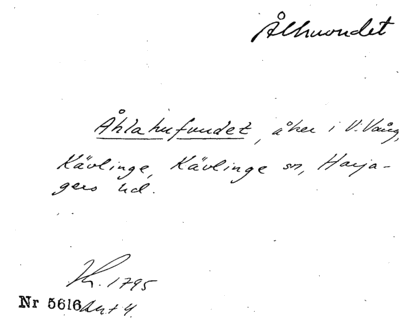 Ålhuvudet
Åhlahufvudet, åker i V. Vång,
Kävlinge, Kävlinge sn, Harja-
gers hd.
1795
Nr 5616 Akt 4